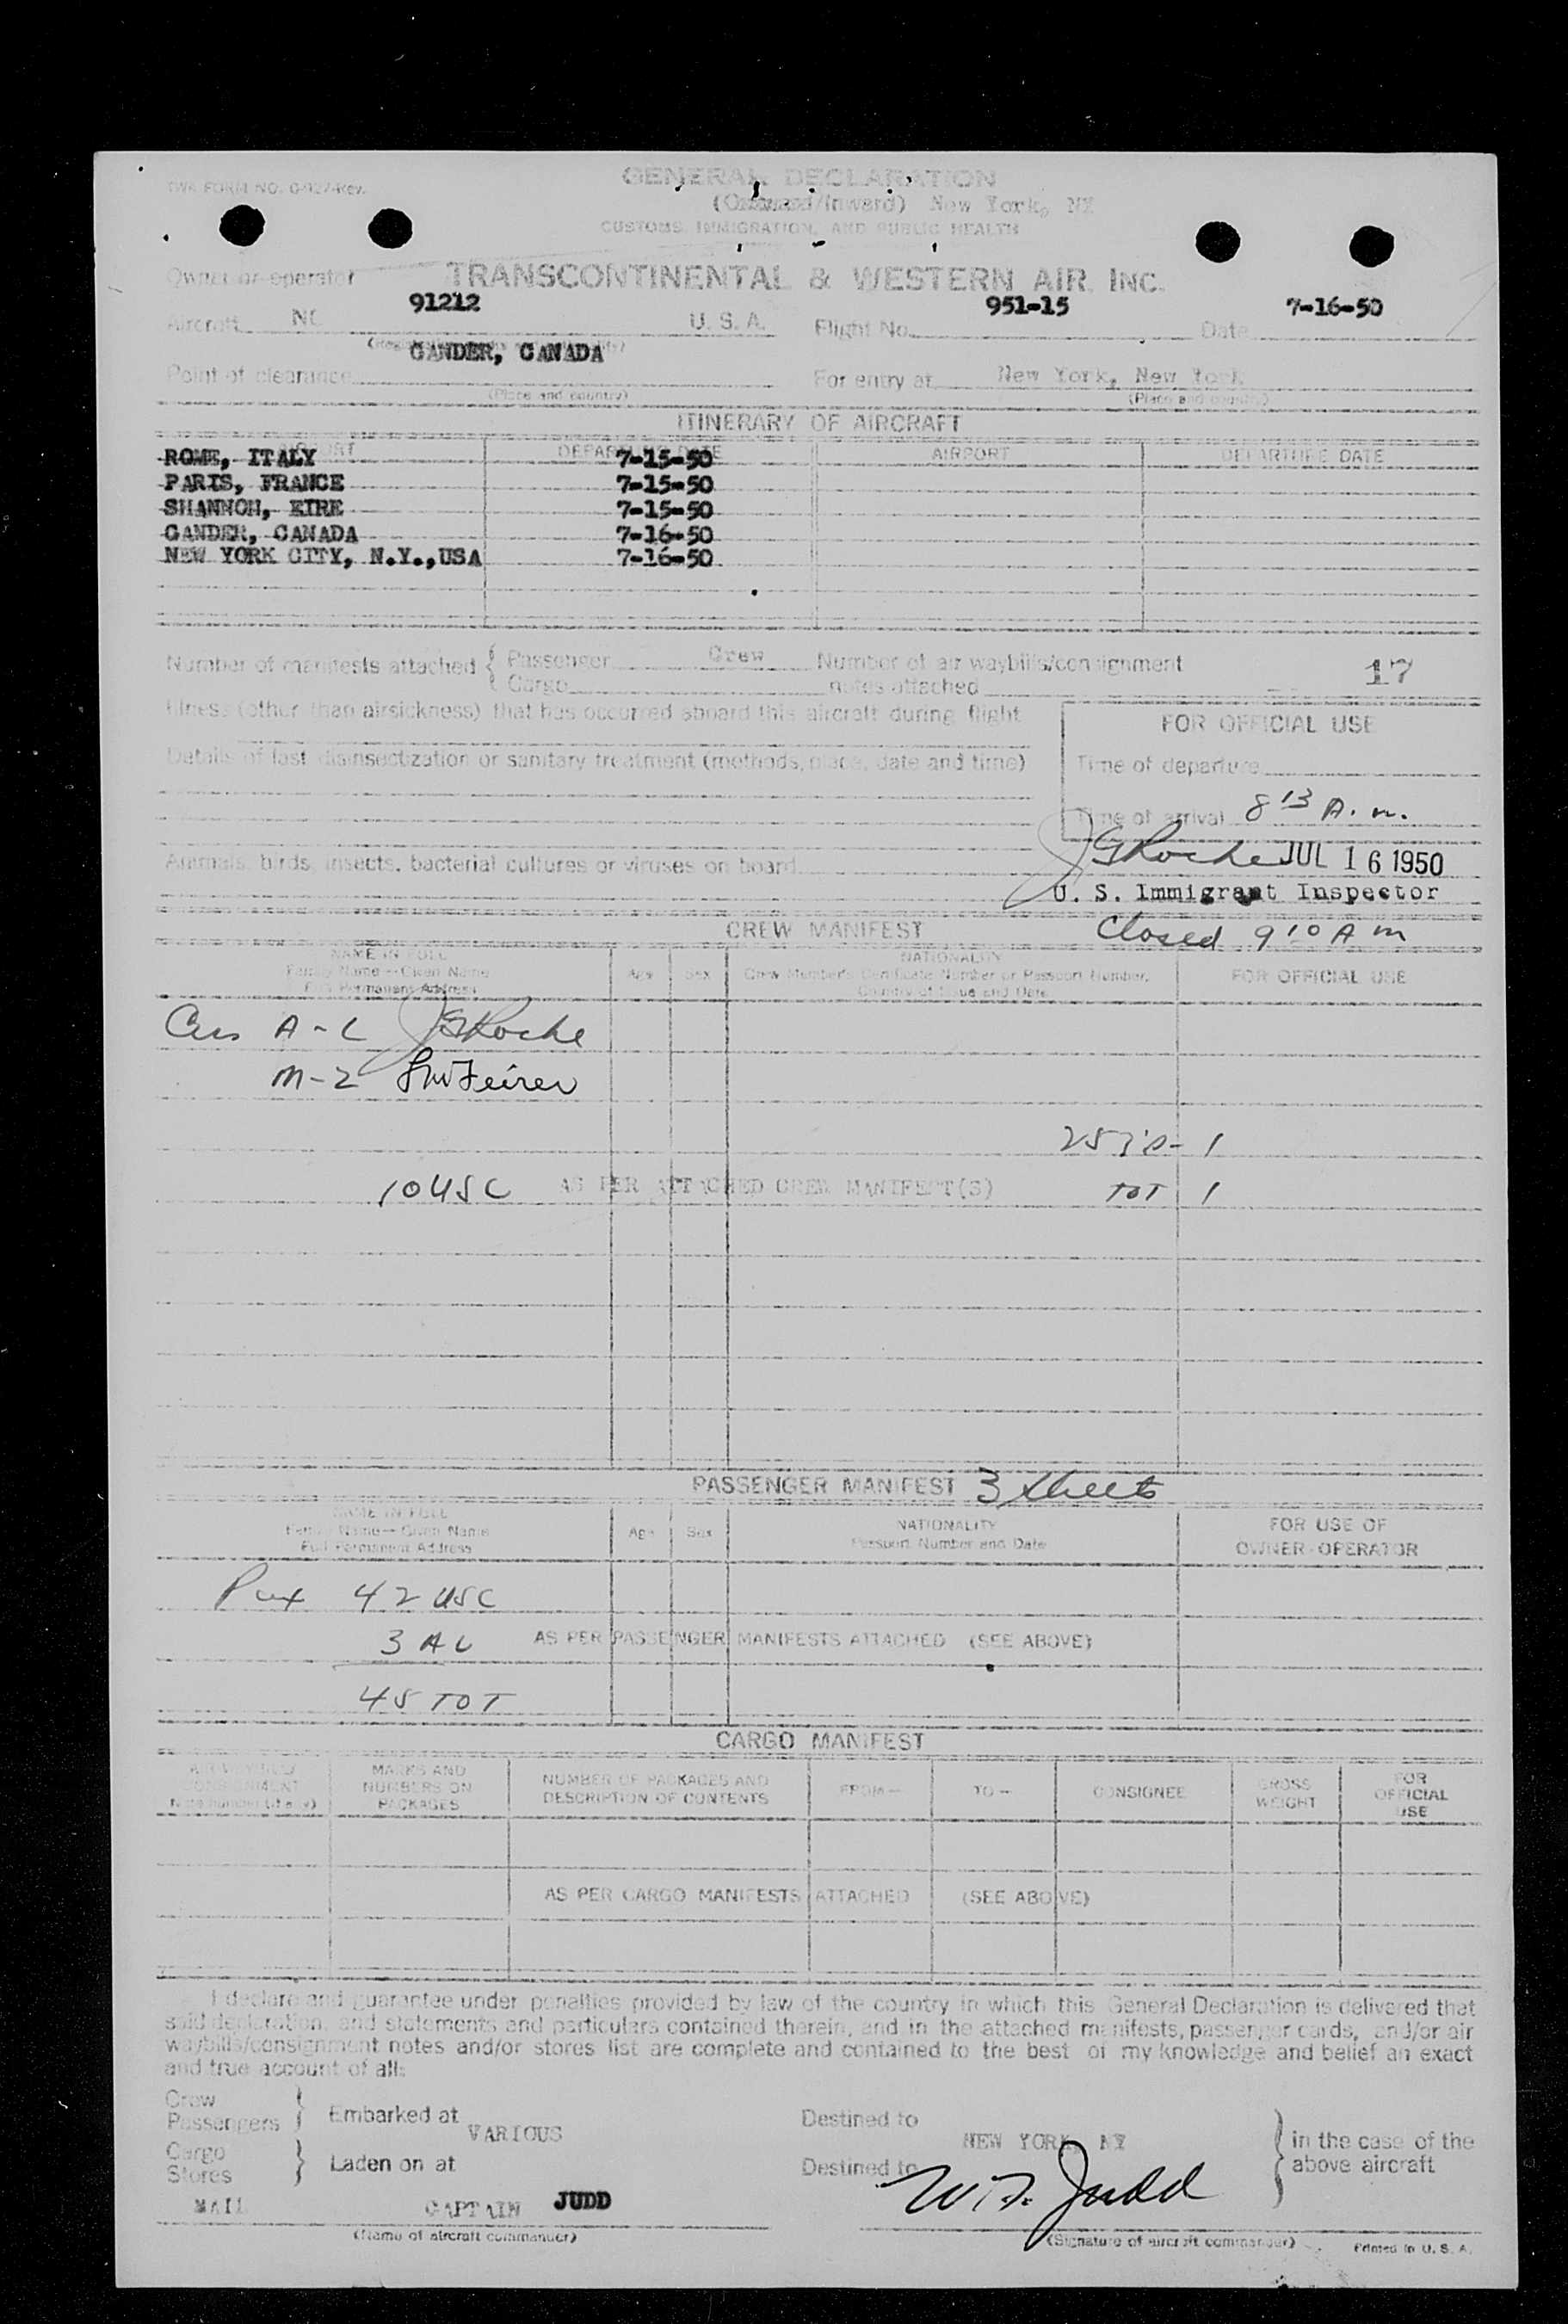 TWA FORM NO. 0-927-Rev.
GENERAL DECLARATION
(Outward/Inward) New York, NY
CUSTOMS, IMMIGRATION, AND PUBLIC HEALTH
Owner or operator TRANSCONTINENTAL & WESTERN AIR, INC.
Aircraft NC 91212 U. S. A. Flight No. 951-15 Date 7-16-50
Point of clearance GANDER, CANADA For entry at New York, New York
(Place and country) (Place and country)
ITINERARY OF AIRCRAFT
AIRPORT DEPARTURE DATE AIRPORT DEPARTURE DATE
ROME, ITALY 7-15-50
PARIS, FRANCE 7-15-50
SHANNON, EIRE 7-15-50
GANDER, CANADA 7-16-50
NEW YORK CITY, N.Y.,USA 7-16-50
Number of manifests attached { Passenger Crew Number of air waybills/consignment 17
Cargo notes attached
Illness (other than airsickness) that has occurred aboard this aircraft during flight
FOR OFFICIAL USE
Details of last disinsectization or sanitary treatment (methods, place, date and time)
Time of departure
Time of arrival 8 13 A. m.
JG Roche JUL 16 1950
Animals, birds, insects, bacterial cultures or viruses on board
U. S. Immigrant Inspector
CREW MANIFEST Closed 9 10 A m
NAME IN FULL NATIONALITY
Family Name—Given Name Age Sex Crew Member's Certificate Number or Passport Number, FOR OFFICIAL USE
Full Permanent Address Country of Issue and Date
A-L JG Roche
M-Z
1
10 USC AS PER ATTACHED CREW MANIFEST(S) TOT 1
PASSENGER MANIFEST 3 sheets
NAME IN FULL NATIONALITY FOR USE OF
Family Name—Given Name Age Sex Passport Number and Date OWNER-OPERATOR
Full Permanent Address
Pax 42 USC
3 AL AS PER PASSENGER MANIFESTS ATTACHED (SEE ABOVE)
45 TOT
CARGO MANIFEST
AIR WAYBILL/ MARKS AND NUMBER OF PACKAGES AND FROM— TO— CONSIGNEE GROSS FOR
CONSIGNMENT NUMBERS ON DESCRIPTION OF CONTENTS WEIGHT OFFICIAL
Note number (if any) PACKAGES USE
AS PER CARGO MANIFESTS ATTACHED (SEE ABOVE)
I declare and guarantee under penalties provided by law of the country in which this General Declaration is delivered that
said declaration, and statements and particulars contained therein, and in the attached manifests, passenger cards, and/or air
waybills/consignment notes and/or stores list are complete and contained to the best of my knowledge and belief an exact
and true account of all:
Crew
Passengers } Embarked at VARIOUS Destined to NEW YORK, NY } in the case of the
Cargo
Stores } Laden on at Destined to above aircraft
MAIL CAPTAIN JUDD W. F. Judd
(Name of aircraft commander) (Signature of aircraft commander) Printed in U. S. A.